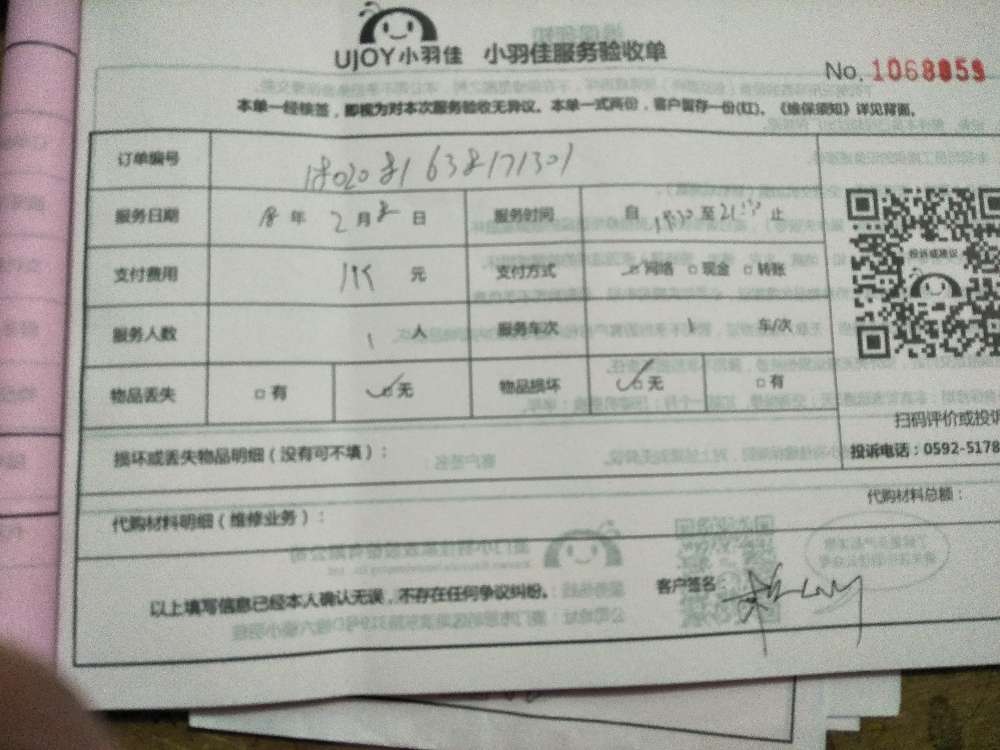 UJOY小羽佳 小羽佳服务验收单
No. 1068859
本单一经核签，即视为对本次服务验收无异议。本单一式两份，客户留存一份(红)。《维保须知》详见背面。
订单编号 1802081638171301
服务日期 18 年 2 月 8 日 服务时间 自 18:30 至 21:30 止
支付费用 元 支付方式 网络 □现金 □转账
服务人数 1 人 服务车次 1 车/次
物品丢失 □有 ☑无 物品损坏 ☑无 □有
投诉或建议
扫码评价或投诉
投诉电话：0592-5178
损坏或丢失物品明细（没有可不填）：
代购材料总额：
代购材料明细（维修业务）：
以上填写信息已经本人确认无误，不存在任何争议纠纷。 客户签名